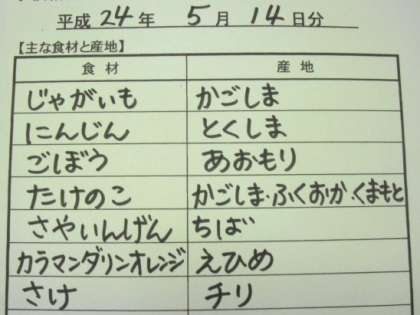 平成 24 年 5 月 14 日分
【主な食材と産地】
食材 産地
じゃがいも かごしま
にんじん とくしま
ごぼう あおもり
たけのこ かごしま・ふくおか・くまもと
さやいんげん ちば
カラマンダリンオレンジ えひめ
さけ チリ